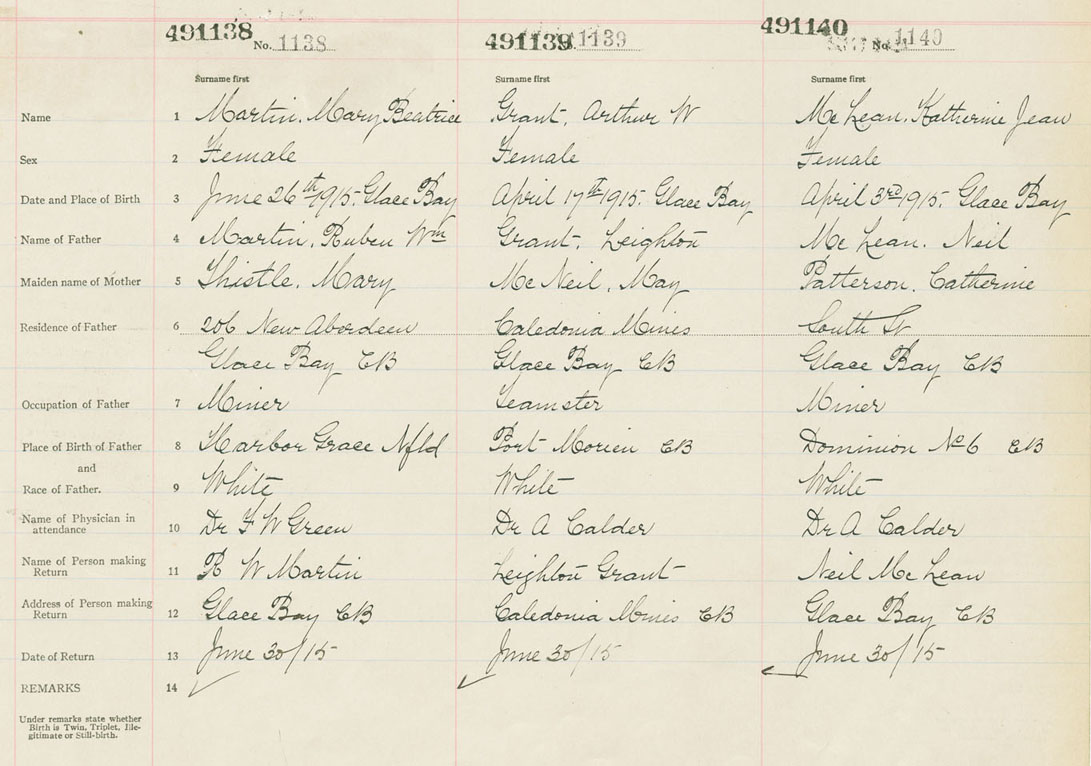 491138 No. 1138 491139 1139 491140 No. 1140
Surname first Surname first Surname first
Name 1 Martin. Mary Beatrice Grant. Arthur W McLean. Katherine Jean
Sex 2 Female Female Female
Date and Place of Birth 3 June 26th 1915. Glace Bay April 17th 1915. Glace Bay April 3rd 1915. Glace Bay
Name of Father 4 Martin. Ruben Wm Grant. Leighton McLean. Neil
Maiden name of Mother 5 Thistle. Mary McNeil. May Patterson. Catherine
Residence of Father 6 206 New Aberdeen Caledonia Mines South St
Glace Bay CB Glace Bay CB Glace Bay CB
Occupation of Father 7 Miner Teamster Miner
Place of Birth of Father 8 Harbor Grace Nfld Port Morien CB Dominion No 6 CB
and
Race of Father. 9 White White White
Name of Physician in
attendance 10 Dr F W Green Dr A Calder Dr A Calder
Name of Person making
Return 11 R W Martin Leighton Grant Neil McLean
Address of Person making
Return 12 Glace Bay CB Caledonia Mines CB Glace Bay CB
Date of Return 13 June 30/15 June 30/15 June 30/15
REMARKS 14
Under remarks state whether
Birth is Twin, Triplet, Ille-
gitimate or Still-birth.